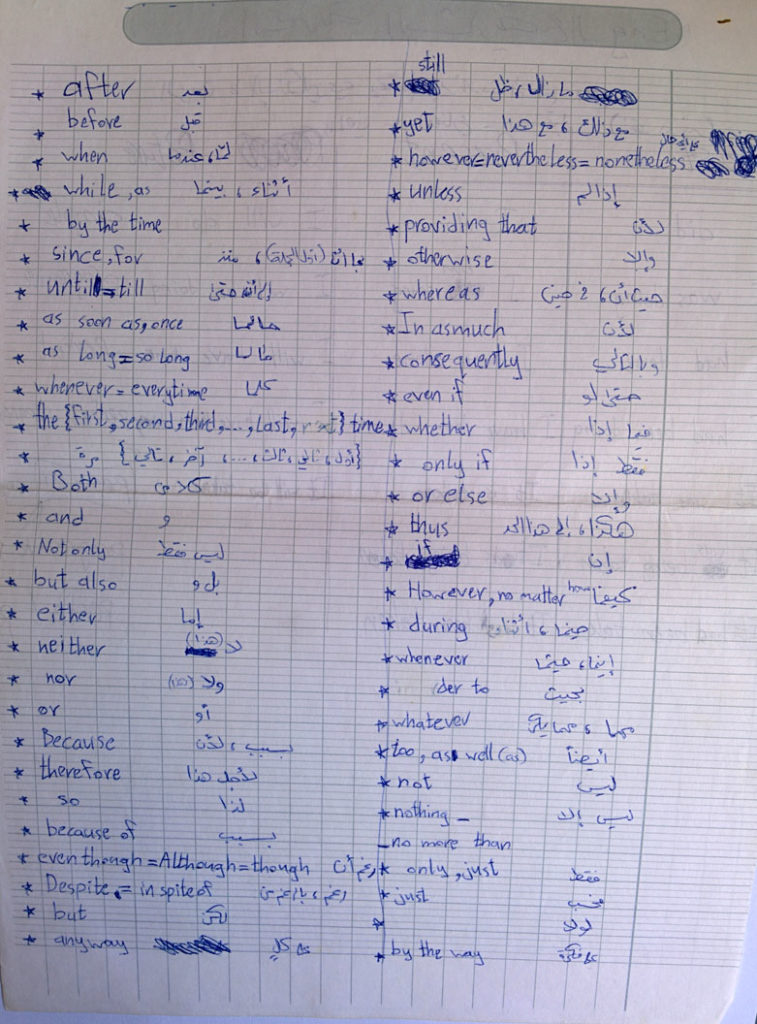 * after بعد
* before قبل
* when لمّا، عندما
* while, as أثناء، بينما
* by the time
* since, for منذ
* until = till إلى أن، حتى
* as soon as, once حالما
* as long = so long طالما
* whenever = everytime كلما
* the {first, second, third, ..., last, next} time
* {أول، ثاني، ثالث، ...، آخر، تالي} مرة
* Both كلا من
* and و
* Not only ليس فقط
* but also بل و
* either إما
* neither لا (هذا)
* nor ولا (هذا)
* or أو
* Because بسبب، لأن
* therefore لأجل هذا
* so لذا
* because of بسبب
* even though = Although = though رغم أن
* Despite = in spite of رغم، بالرغم من
* but لكن
* anyway على كل
* still مازال، ظل
* yet مع ذلك، مع هذا
* however = nevertheless = nonetheless
* unless إذا لم
* providing that لأن
* otherwise وإلا
* whereas حيث أن، في حين
* In asmuch لأن
* consequently وبالتالي
* even if حتى لو
* whether فيما إذا
* only if فقط إذا
* or else وإلا
* thus هكذا، إلى هذا الحد
* if إن
* However, no matter how كيفما
* during حينما، أثناء
* whenever أينما، حيثما
* der to بحيث
* whatever مهما، مهما يكن
* too, as well (as) أيضاً
* not ليس
* nothing - ليس إلا
- no more than
* only, just فقط
* just فحسب
* لولا
* by the way على فكرة